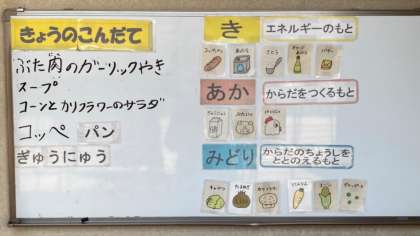 きょうのこんだて
ぶた肉のガーリックやき
スープ
コーンとカリフラワーのサラダ
コッペ パン
ぎゅうにゅう
き エネルギーのもと
あか からだをつくるもと
みどり からだのちょうしを
ととのえるもと